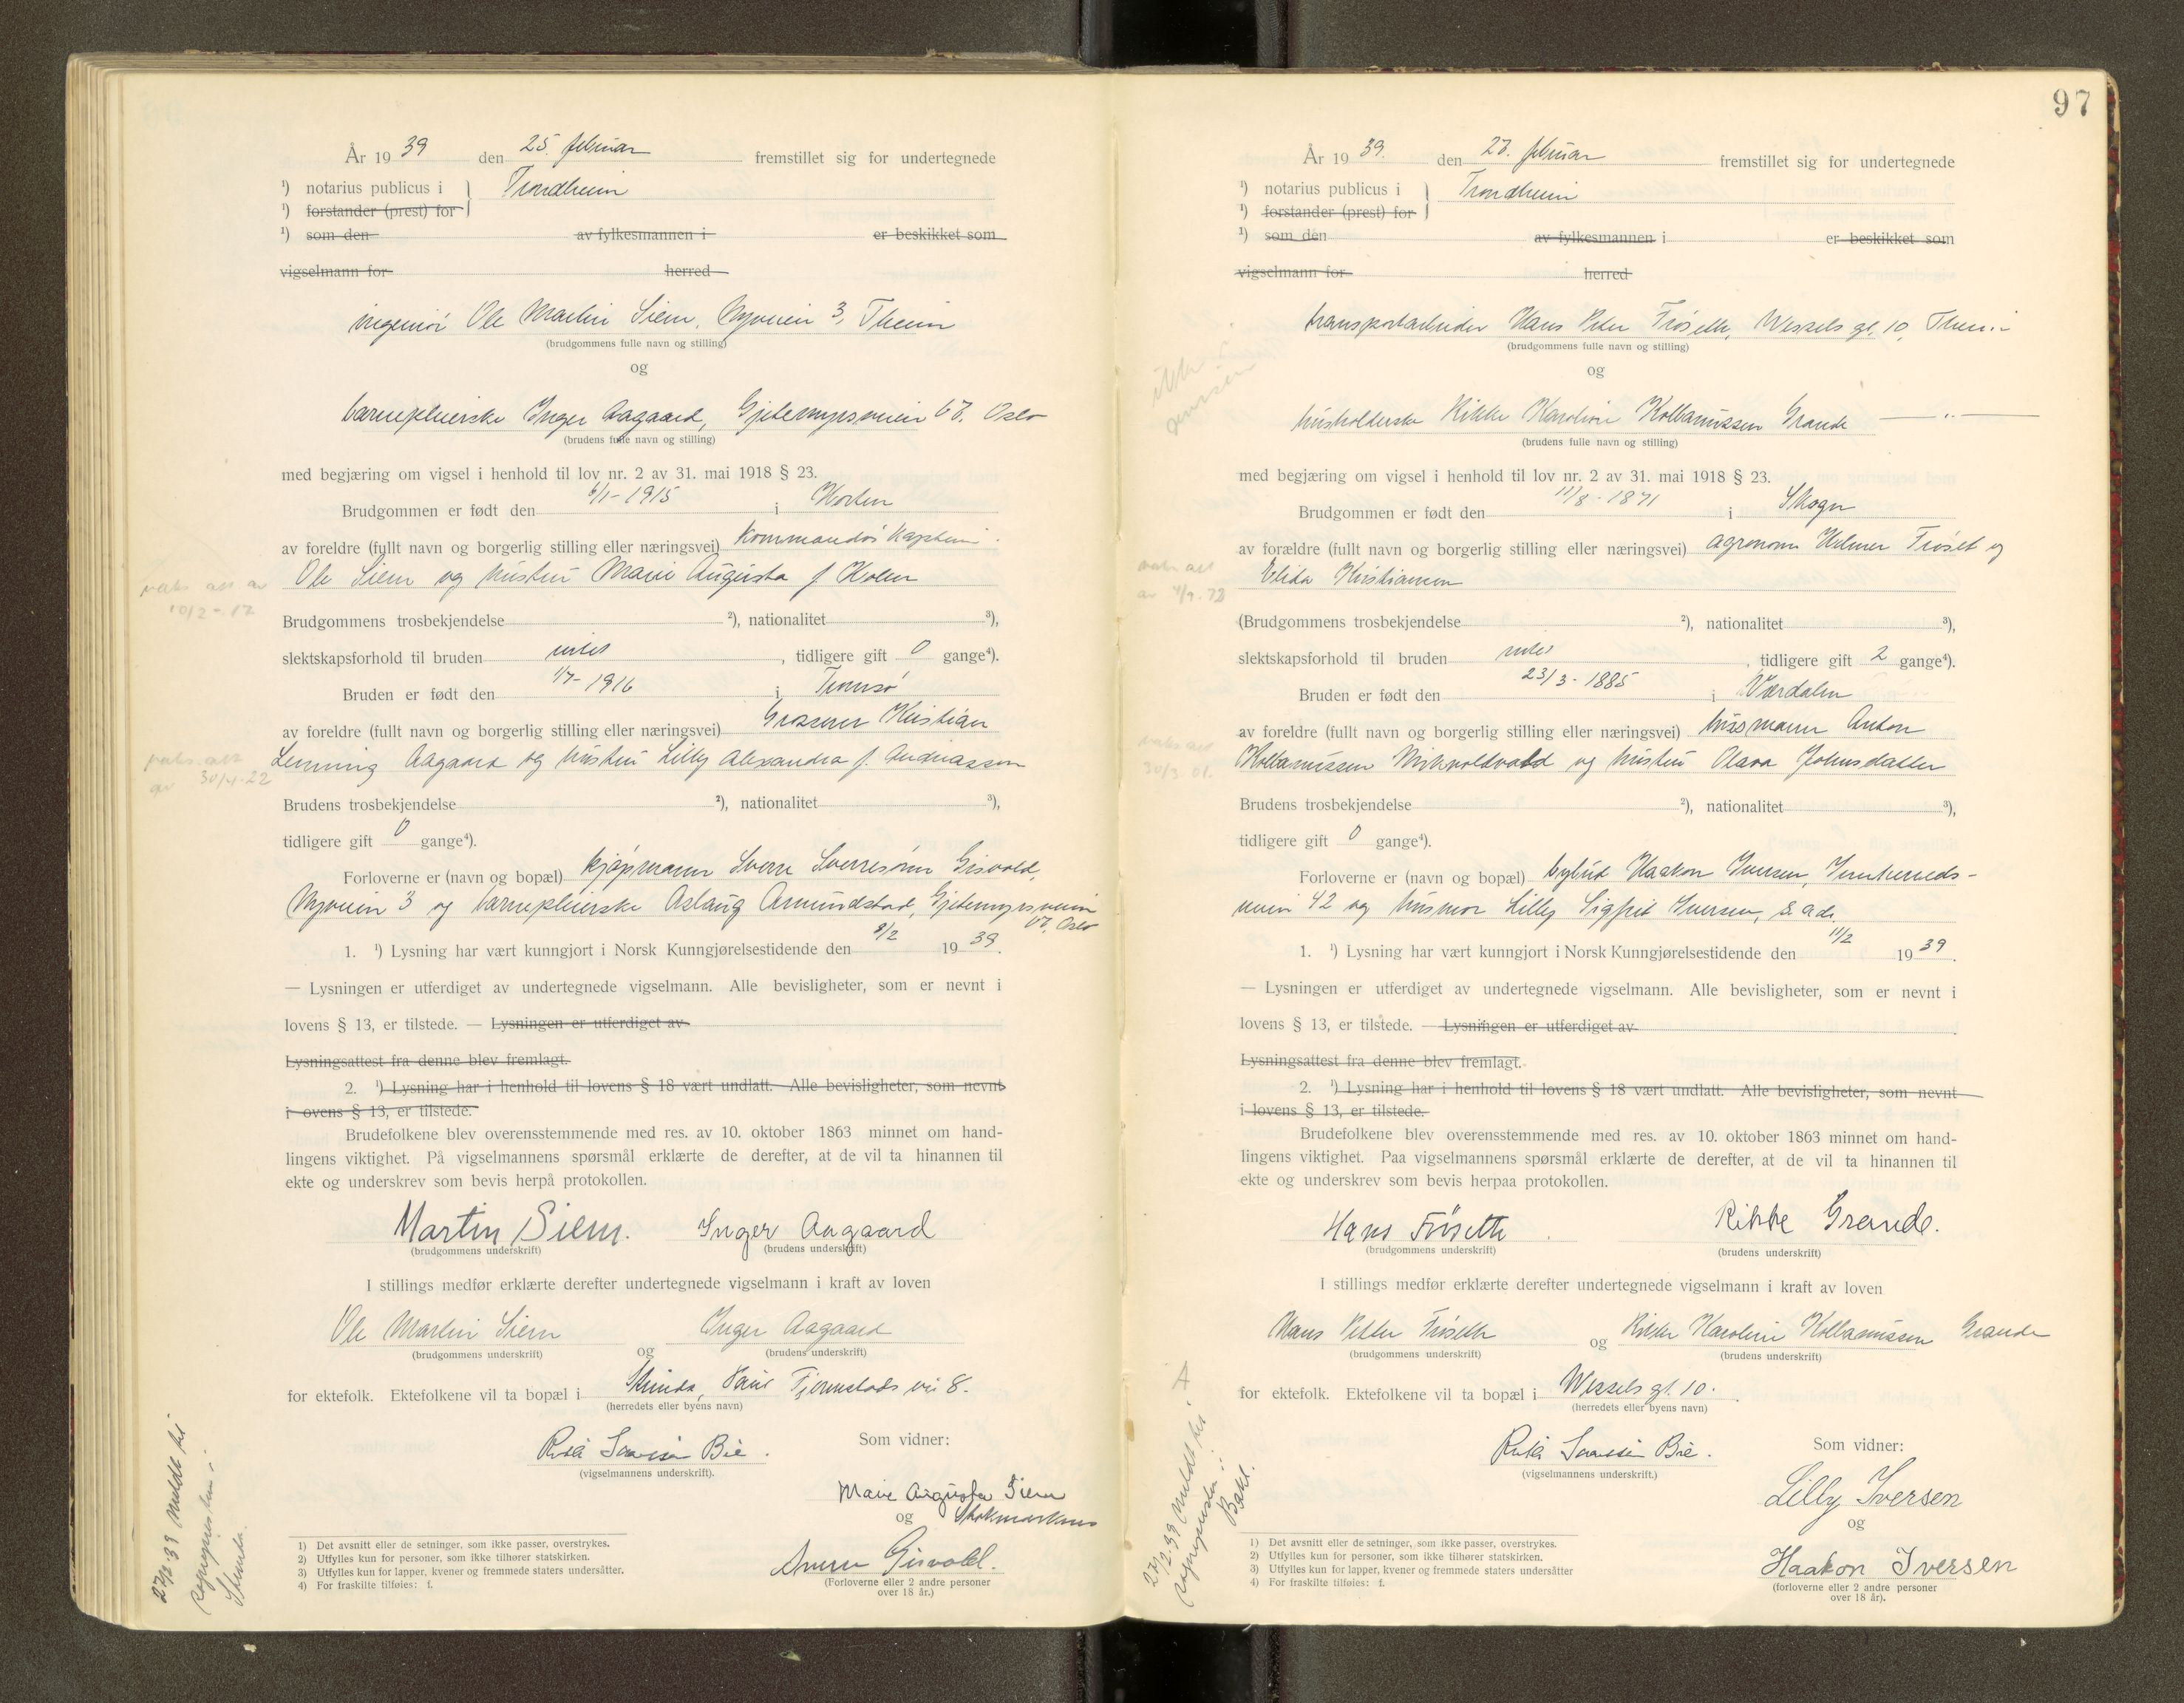 År 19 39 den 25. februar fremstillet sig for undertegnede
¹) notarius publicus i Trondheim
¹) forstander (prest) for
¹) som den av fylkesmannen i er beskikket som
vigselmann for herred
ingeniør Ole Martin Siem, Nyveien 3, Theim
(brudgommens fulle navn og stilling)
og
barnepleierske Inger Aagaard, Gjetemyrsveien 67. Oslo
(brudens fulle navn og stilling)
med begjæring om vigsel i henhold til lov nr. 2 av 31. mai 1918 § 23.
Brudgommen er født den 6/1-1915 i Horten
av foreldre (fullt navn og borgerlig stilling eller næringsvei) Kommandørkaptein
Ole Siem og hustru Marie Augusta f Holm
vaks att av
10/2-17
Brudgommens trosbekjendelse ²), nationalitet ³),
slektskapsforhold til bruden intet, tidligere gift 0 gange⁴).
Bruden er født den 1/7-1916 i Tromsø
av foreldre (fullt navn og borgerlig stilling eller næringsvei) Grosserer Kristian
Lemming Aagaard og hustru Lilly Alexandra f. Andreassen
vaks. att
av 30/4-22
Brudens trosbekjendelse ²), nationalitet ³),
tidligere gift 0 gange⁴).
Forloverne er (navn og bopæl) kjøpmann Sverre Sverresønn Gisvold,
Nyveien 3 og barnepleierske Aslaug Amundstad, Gjetemyrsveien
67, Oslo
1. ¹) Lysning har vært kunngjort i Norsk Kunngjørelsestidende den 8/2 19 39.
— Lysningen er utferdiget av undertegnede vigselmann. Alle bevisligheter, som er nevnt i
lovens § 13, er tilstede. — Lysningen er utferdiget av
Lysningsattest fra denne blev fremlagt.
2. ¹) Lysning har i henhold til lovens § 18 vært undlatt. Alle bevisligheter, som nevnt
i ovens § 13, er tilstede.
Brudefolkene blev overensstemmende med res. av 10. oktober 1863 minnet om hand-
lingens viktighet. På vigselmannens spørsmål erklærte de derefter, at de vil ta hinannen til
ekte og underskrev som bevis herpå protokollen.
Martin Siem. Inger Aagaard
(brudgommens underskrift) (brudens underskrift)
I stillings medfør erklærte derefter undertegnede vigselmann i kraft av loven
Ole Martin Siem og Inger Aagaard
(brudgommens underskrift) (brudens underskrift)
for ektefolk. Ektefolkene vil ta bopæl i Strinda, Paul Fjermstads vei 8.
(herredets eller byens navn)
Bie.
(vigselmannens underskrift).
Som vidner:
Marie Augusta Siem
og Stokmarknes
Sverre Gisvold.
(Forloverne eller 2 andre personer
over 18 år.)
27/2 39 meldt til
Strinda.
1) Det avsnitt eller de setninger, som ikke passer, overstrykes.
2) Utfylles kun for personer, som ikke tilhører statskirken.
3) Utfylles kun for lapper, kvener og fremmede staters undersåtter.
4) For fraskilte tilføies: f.
97
År 19 39. den 27. februar fremstillet sig for undertegnede
¹) notarius publicus i Trondheim
¹) forstander (prest) for
¹) som den av fylkesmannen i er beskikket som
vigselmann for herred
transportarbeider Hans Peter Frøseth, Wessels gt. 10, Theim
(brudgommens fulle navn og stilling)
og
husholderske Rikke Karoline Kolbanussen Grande — " —
(brudens fulle navn og stilling)
med begjæring om vigsel i henhold til lov nr. 2 av 31. mai 1918 § 23.
Brudgommen er født den 11/8-1871 i Skogn
av forældre (fullt navn og borgerlig stilling eller næringsvei) agronom Hilmer Frøset og
Elida Kristiansen
vaks att
av 4/9.72
(Brudgommens trosbekjendelse ²), nationalitet ³),
slektskapsforhold til bruden intet, tidligere gift 2 gange⁴).
Bruden er født den 23/3-1885 i Værdalen
av foreldre (fullt navn og borgerlig stilling eller næringsvei) husmann Anton
Kolbanussen og hustru Olava Johnsdatter
vaks att
30/3 01.
Brudens trosbekjendelse ²), nationalitet ³),
tidligere gift 0 gange⁴).
Forloverne er (navn og bopæl) bybud Haakon Iversen, Innherreds-
veien 42 og husmor Lilly Sigfrid Iversen, s. adr.
1. ¹) Lysning har vært kunngjort i Norsk Kunngjørelsestidende den 11/2 19 39.
— Lysningen er utferdiget av undertegnede vigselmann. Alle bevisligheter, som er nevnt i
lovens § 13, er tilstede. — Lysningen er utferdiget av
Lysningsattest fra denne blev fremlagt.
2. ¹) Lysning har i henhold til lovens § 18 vært undlatt. Alle bevisligheter, som nevnt
i lovens § 13, er tilstede.
Brudefolkene blev overensstemmende med res. av 10. oktober 1863 minnet om hand-
lingens viktighet. Paa vigselmannens spørsmål erklærte de derefter, at de vil ta hinannen til
ekte og underskrev som bevis herpaa protokollen.
Hans Frøseth Rikke Grande.
(brudgommens underskrift) (brudens underskrift)
I stillings medfør erklærte derefter undertegnede vigselmann i kraft av loven
Hans Petter Frøseth og Rikke Karoline Kolbanussen Grande
(brudgommens underskrift) (brudens underskrift)
for ektefolk. Ektefolkene vil ta bopæl i Wessels gt. 10.
(herredets eller byens navn)
Bie.
(vigselmannens underskrift.)
Som vidner:
Lilly Iversen
og
Haakon Iversen
(forloverne eller 2 andre personer
over 18 år).
A
27/2 39 meldt til
Bakl.
1) Det avsnitt eller de setninger, som ikke passer, overstrykes.
2) Utfylles kun for personer, som ikke tilhører statskirken.
3) Utfylles kun for lapper, kvener og fremmede staters undersåtter
4) For fraskilte tilføies: f.